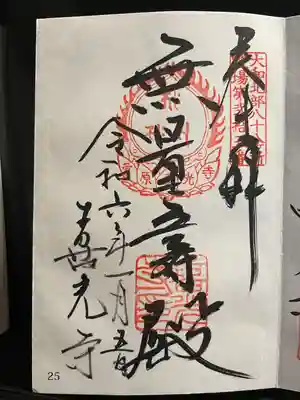 大和北部八十八ヶ所
奉拝
無量寿殿
令和六年一月五日
喜光寺
25